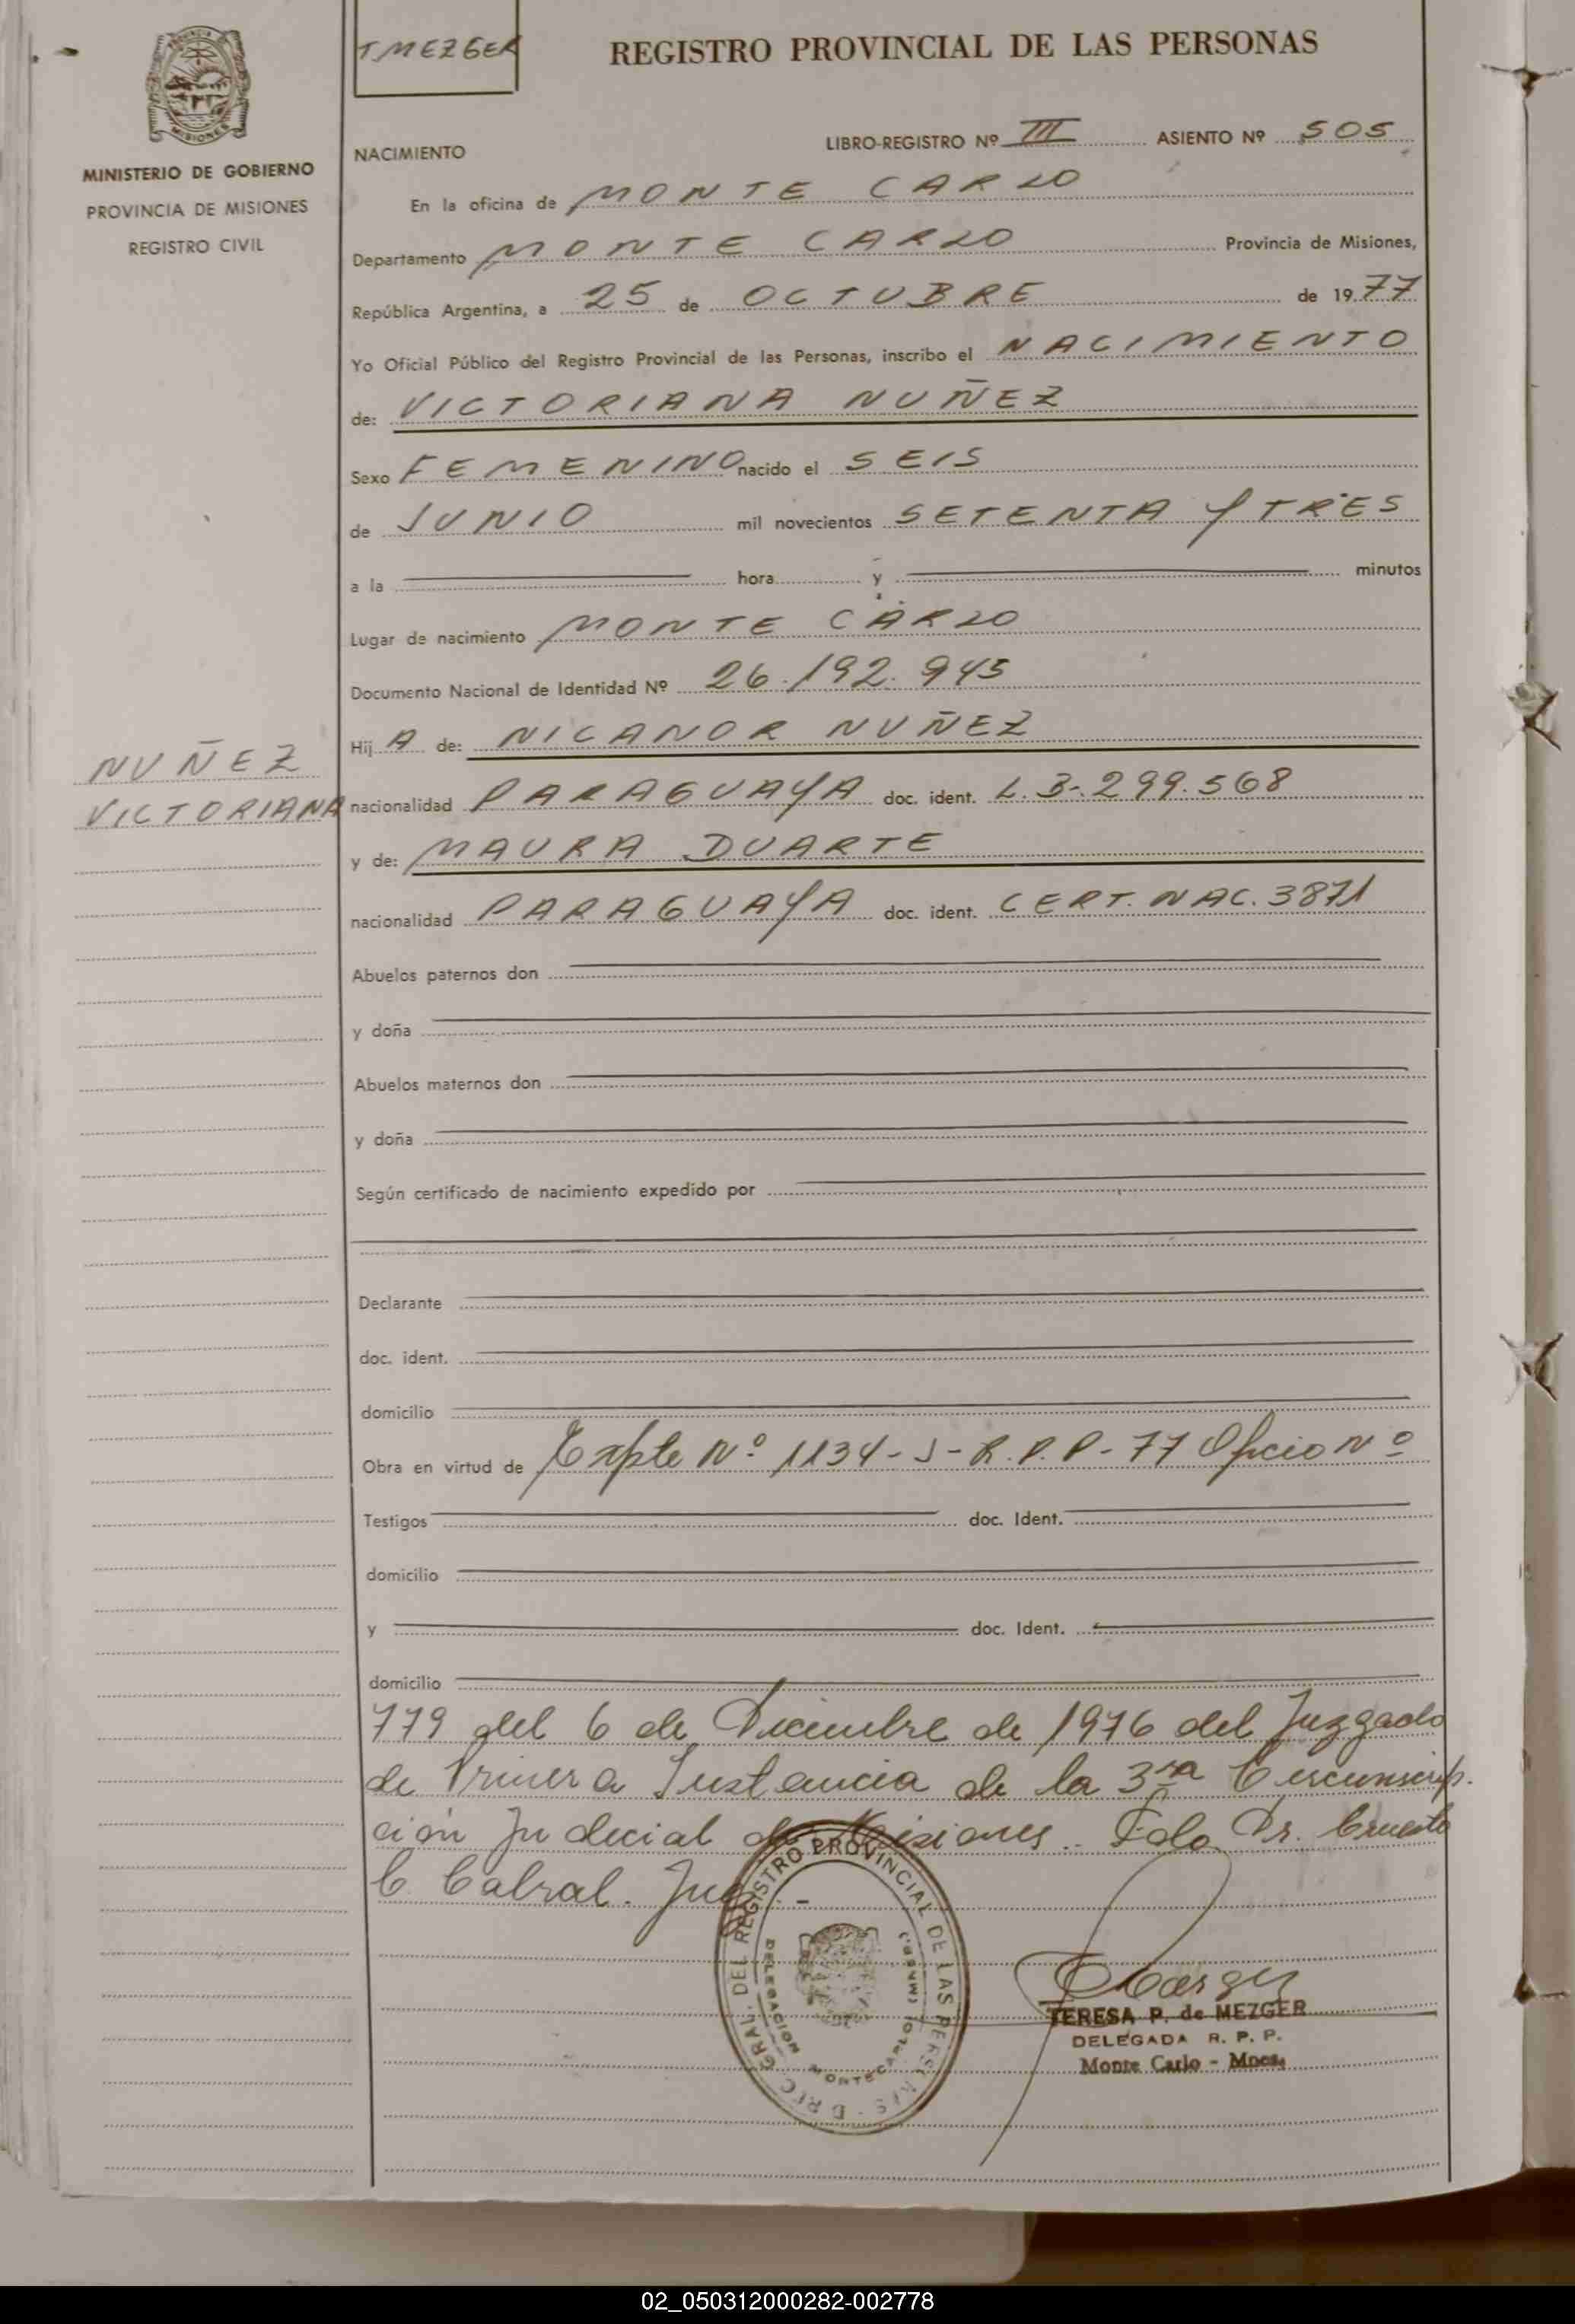 T MEZGER
REGISTRO PROVINCIAL DE LAS PERSONAS
MISIONES
MINISTERIO DE GOBIERNO
PROVINCIA DE MISIONES
REGISTRO CIVIL
NACIMIENTO
LIBRO-REGISTRO Nº III ASIENTO Nº 505
En la oficina de MONTE CARLO
Departamento MONTE CARLO Provincia de Misiones,
República Argentina, a 25 de OCTUBRE de 1977
Yo Oficial Público del Registro Provincial de las Personas, inscribo el NACIMIENTO
de: VICTORIANA NUÑEZ
Sexo FEMENINO nacido el SEIS
de JUNIO mil novecientos SETENTA Y TRES
a la hora y minutos
Lugar de nacimiento MONTE CARLO
Documento Nacional de Identidad Nº 26.192.945
Hij A de: NICANOR NUÑEZ
NUÑEZ
VICTORIANA
nacionalidad PARAGUAYA doc. ident. L. 3.299.568
y de: MAURA DUARTE
nacionalidad PARAGUAYA doc. ident. CERT. NAC. 3871
Abuelos paternos don
y doña
Abuelos maternos don
y doña
Según certificado de nacimiento expedido por
Declarante
doc. ident.
domicilio
Obra en virtud de Expte Nº 1134-J-R.P.P-77 Oficio Nº
Testigos doc. Ident.
domicilio
y doc. Ident.
domicilio
779 del 6 de Diciembre de 1976 del Juzgado
de Primera Instancia de la 3ra Circunscrip.
ción Judicial de Misiones. Fdo Dr. Ernesto
C. Cabral. Juez.-
GRAL. DEL REGISTRO PROVINCIAL DE LAS PERSONAS
DELEGACION MONTECARLO
TERESA P. de MEZGER
DELEGADA R. P. P.
Monte Carlo - Mnes.
02_050312000282-002778